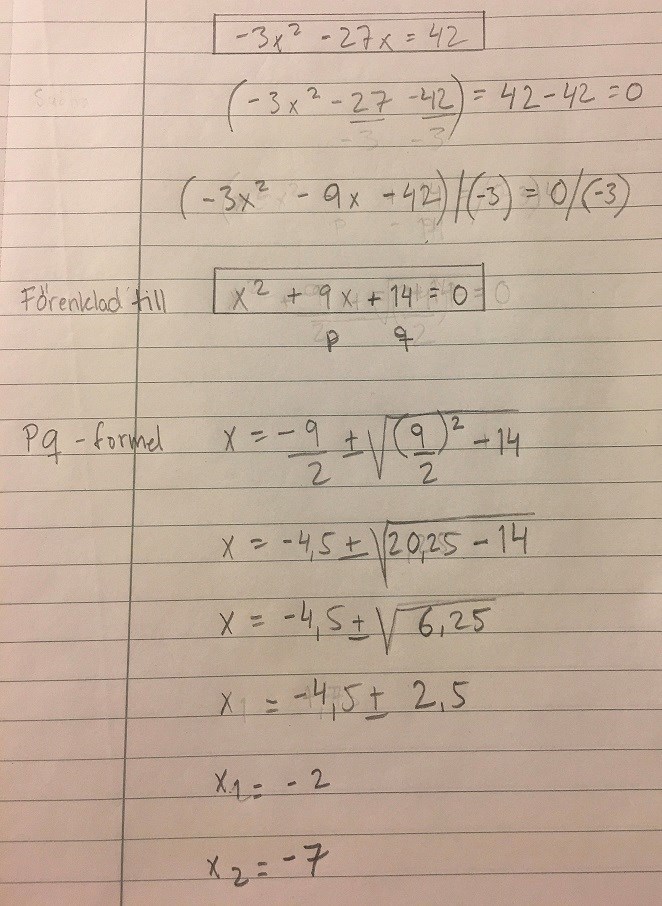 -3x² - 27x = 42
(-3x² - 27 - 42) = 42 - 42 = 0
(-3x² - 9x + 42) / (-3) = 0/(-3)
Förenklad till x² + 9x + 14 = 0
p q
Pq - formel x = -9/2 ± √((9/2)² - 14)
x = -4,5 ± √(20,25 - 14)
x = -4,5 ± √6,25
x₁ = -4,5 ± 2,5
x₁ = -2
x₂ = -7